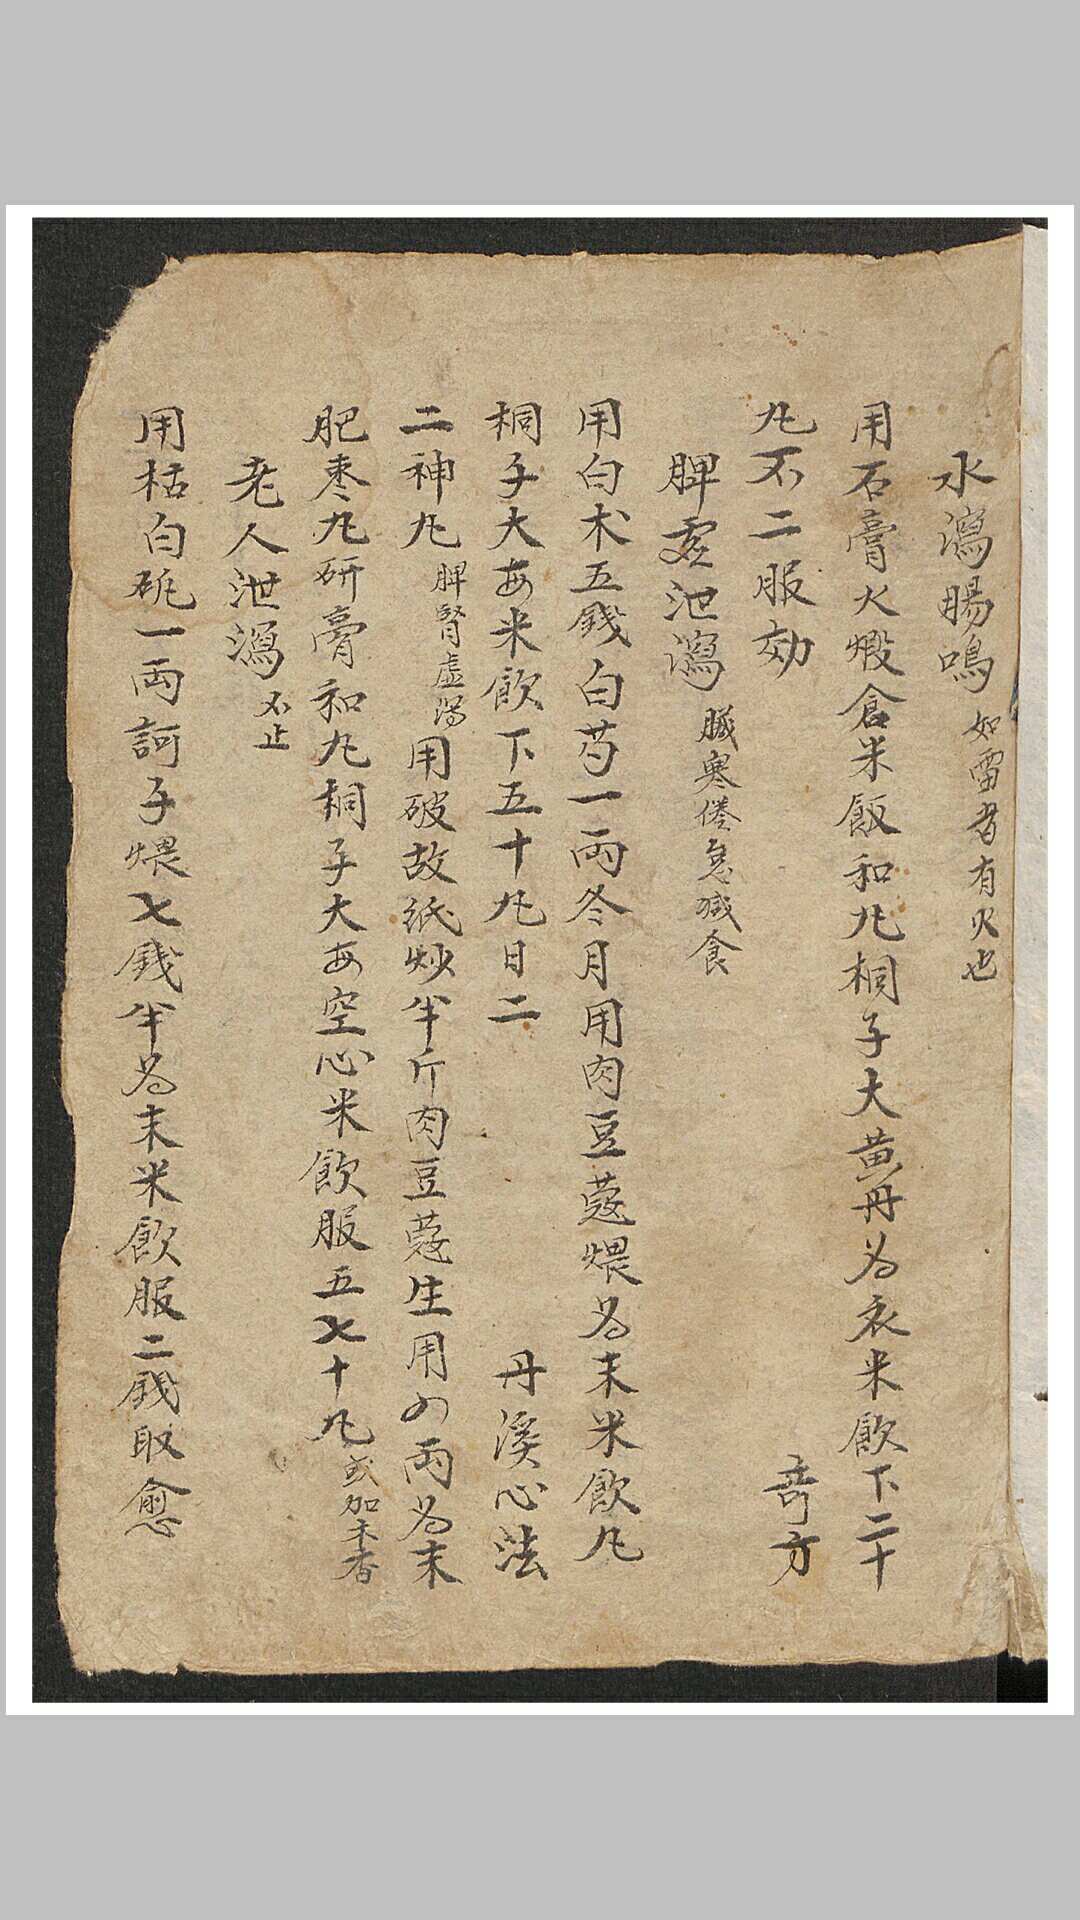 水瀉腸鳴 如雷者有火也
用石膏火煅倉米飯和丸桐子大黃丹為衣米飲下二十
丸不二服効 奇方
脾虛泄瀉 臟寒倦怠减食
用白朮五錢白芍一兩冬月用肉豆蔻煨為末米飲丸
桐子大每米飲下五十丸日二 丹溪心法
二神丸 脾腎虛瀉 用破故紙炒半斤肉豆蔻生用四兩為末
肥棗丸研膏和丸桐子大每空心米飲服五七十丸 或加木香
老人泄瀉 不止
用枯白矾一兩訶子煨七錢半為末米飲服二錢取愈